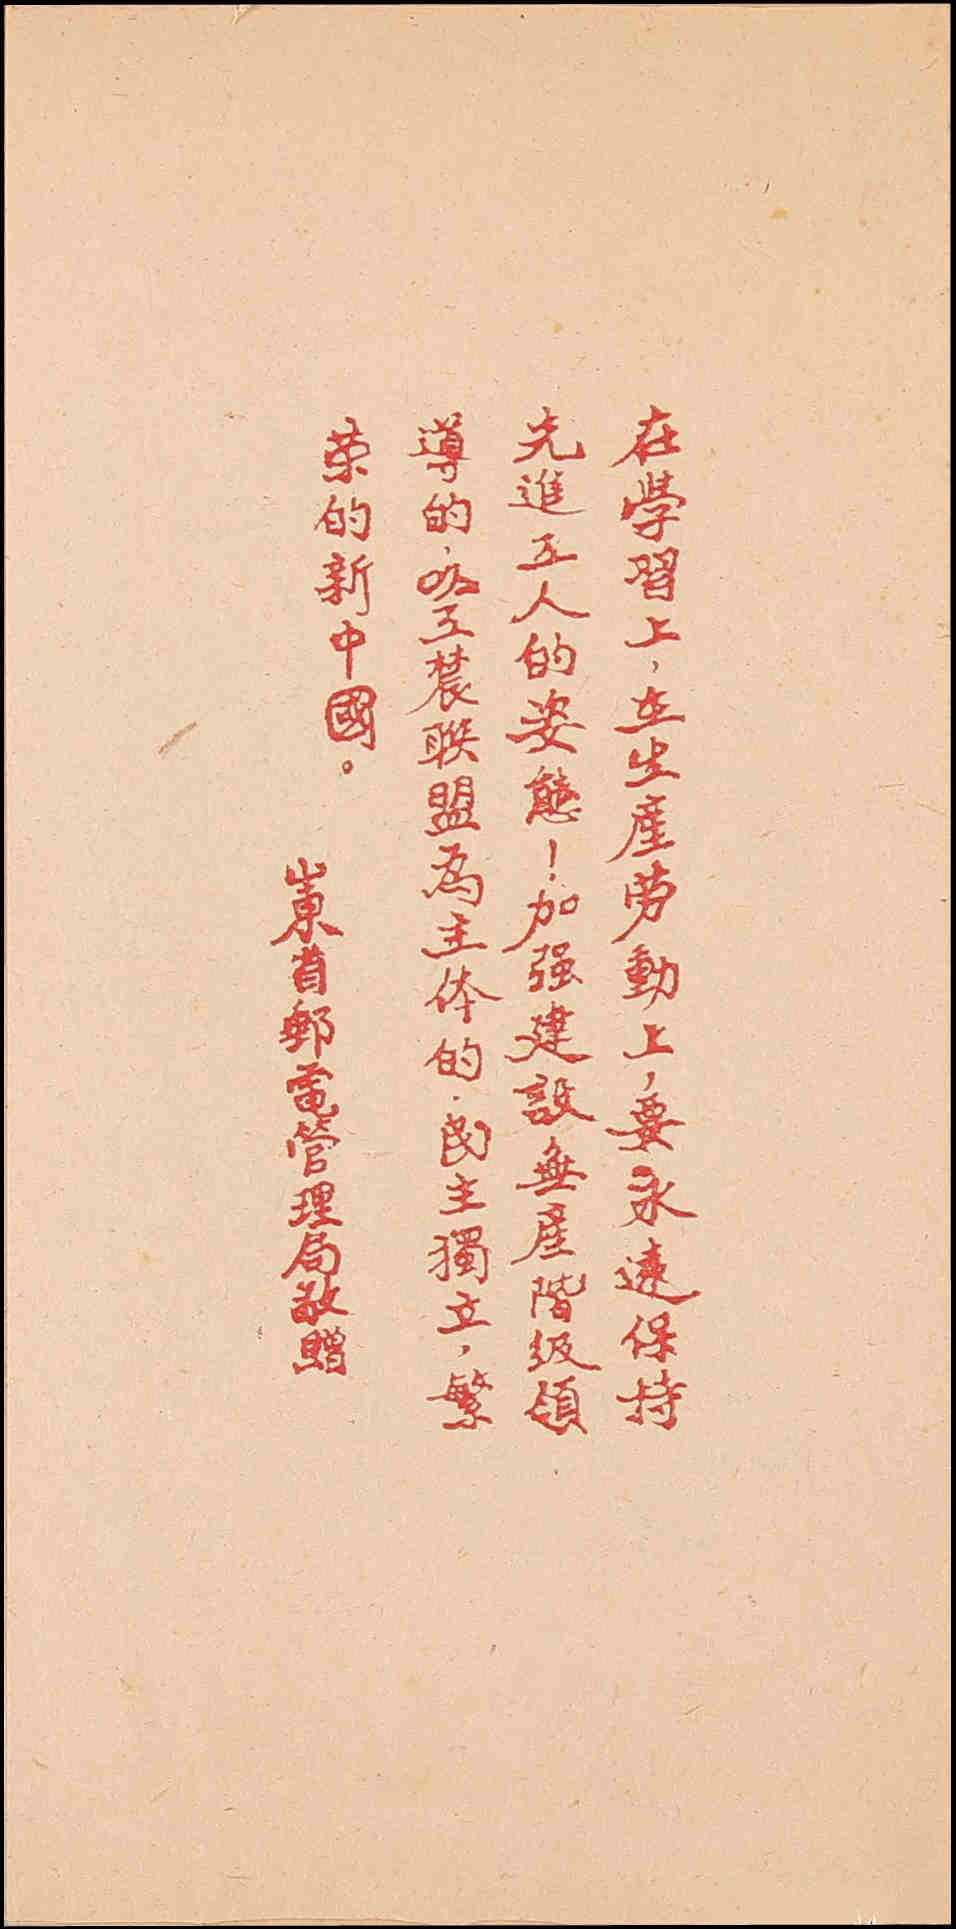 在學習上，在生產劳動上，要永遠保持
先進工人的姿態！加强建設無產階级領
導的，以工農联盟為主体的，民主獨立，繁
荣的新中國。
山東省郵電管理局敬贈